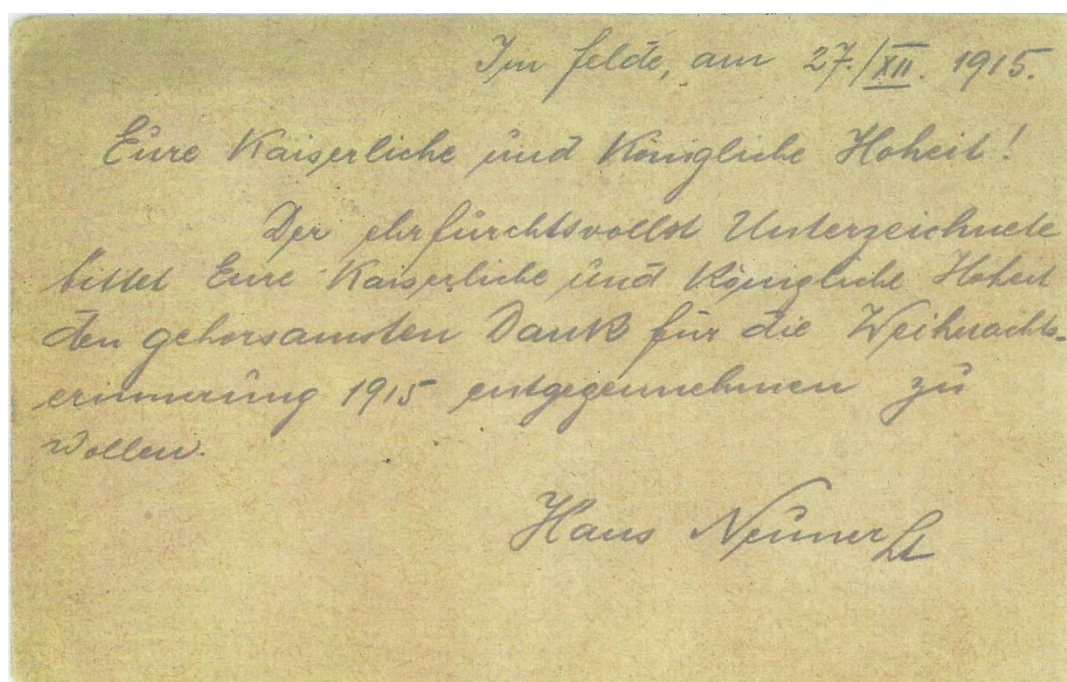 Im felde, am 27./XII. 1915.
Eure Kaiserliche und Königliche Hoheit!
Der ehrfurchtsvollst Unterzeichnete
bittet Eure Kaiserliche und Königliche Hoheit
den gehorsamsten Dank für die Weihnachts-
erinnerung 1915 entgegennehmen zu
wollen.
Hans Neuner Lt